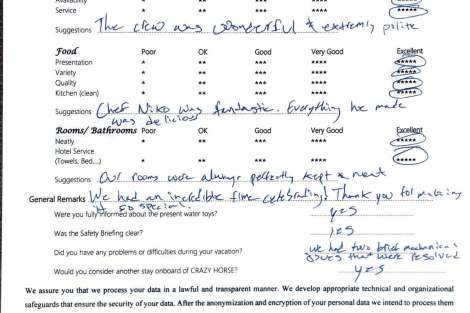 Service * ** *** **** *****
Suggestions The crew was wonderful & extremly polite
Food Poor OK Good Very Good Excellent
Presentation * ** *** **** *****
Variety * ** *** **** *****
Quality * ** *** **** *****
Kitchen (clean) * ** *** **** *****
Suggestions Chef Niko was fantastic. Everything he made
was delicious
Rooms/ Bathrooms Poor OK Good Very Good Excellent
Neatly * ** *** **** *****
Hotel Service
(Towels, Bed....) * ** *** **** *****
Suggestions Our rooms were always perfectly kept & neat
General Remarks We had an incredible time celebrating! Thank you for making
it so special.
Were you fully informed about the present water toys? yes
Was the Safety Briefing clear? yes
Did you have any problems or difficulties during your vacation? We had two brief mechanical
issues that were resolved
Would you consider another stay onboard of CRAZY HORSE? yes
We assure you that we process your data in a lawful and transparent manner. We develop appropriate technical and organizational
safeguards that ensure the security of your data. After the anonymization and encryption of your personal data we intend to process them